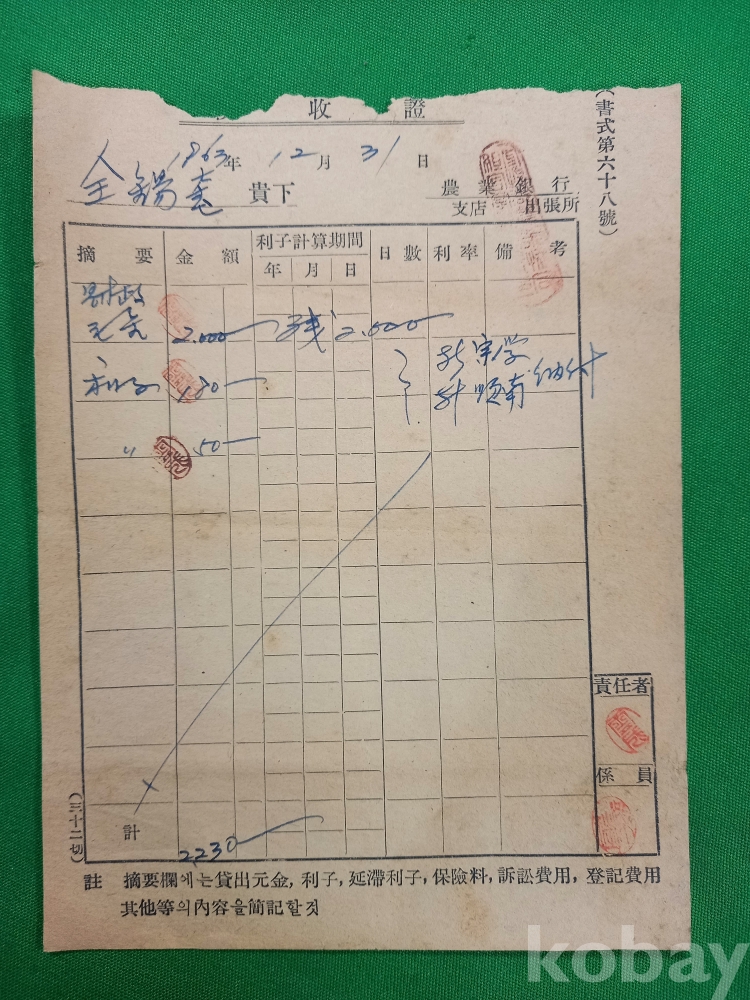 收 證
(書式第六十八號)
1963年 12月 31日
金錫 貴下
農業銀行
支店 出張所
摘要 金額 利子計算期間 日數 利率 備考
年 月 日
財政
元金 2,000 残 2,000
利子 180
〃 50
納付
計 2,230
責任者
係員
(三十二切)
註 摘要欄에는貸出元金, 利子, 延滯利子, 保險料, 訴訟費用, 登記費用
其他等의內容을簡記할것
kobay